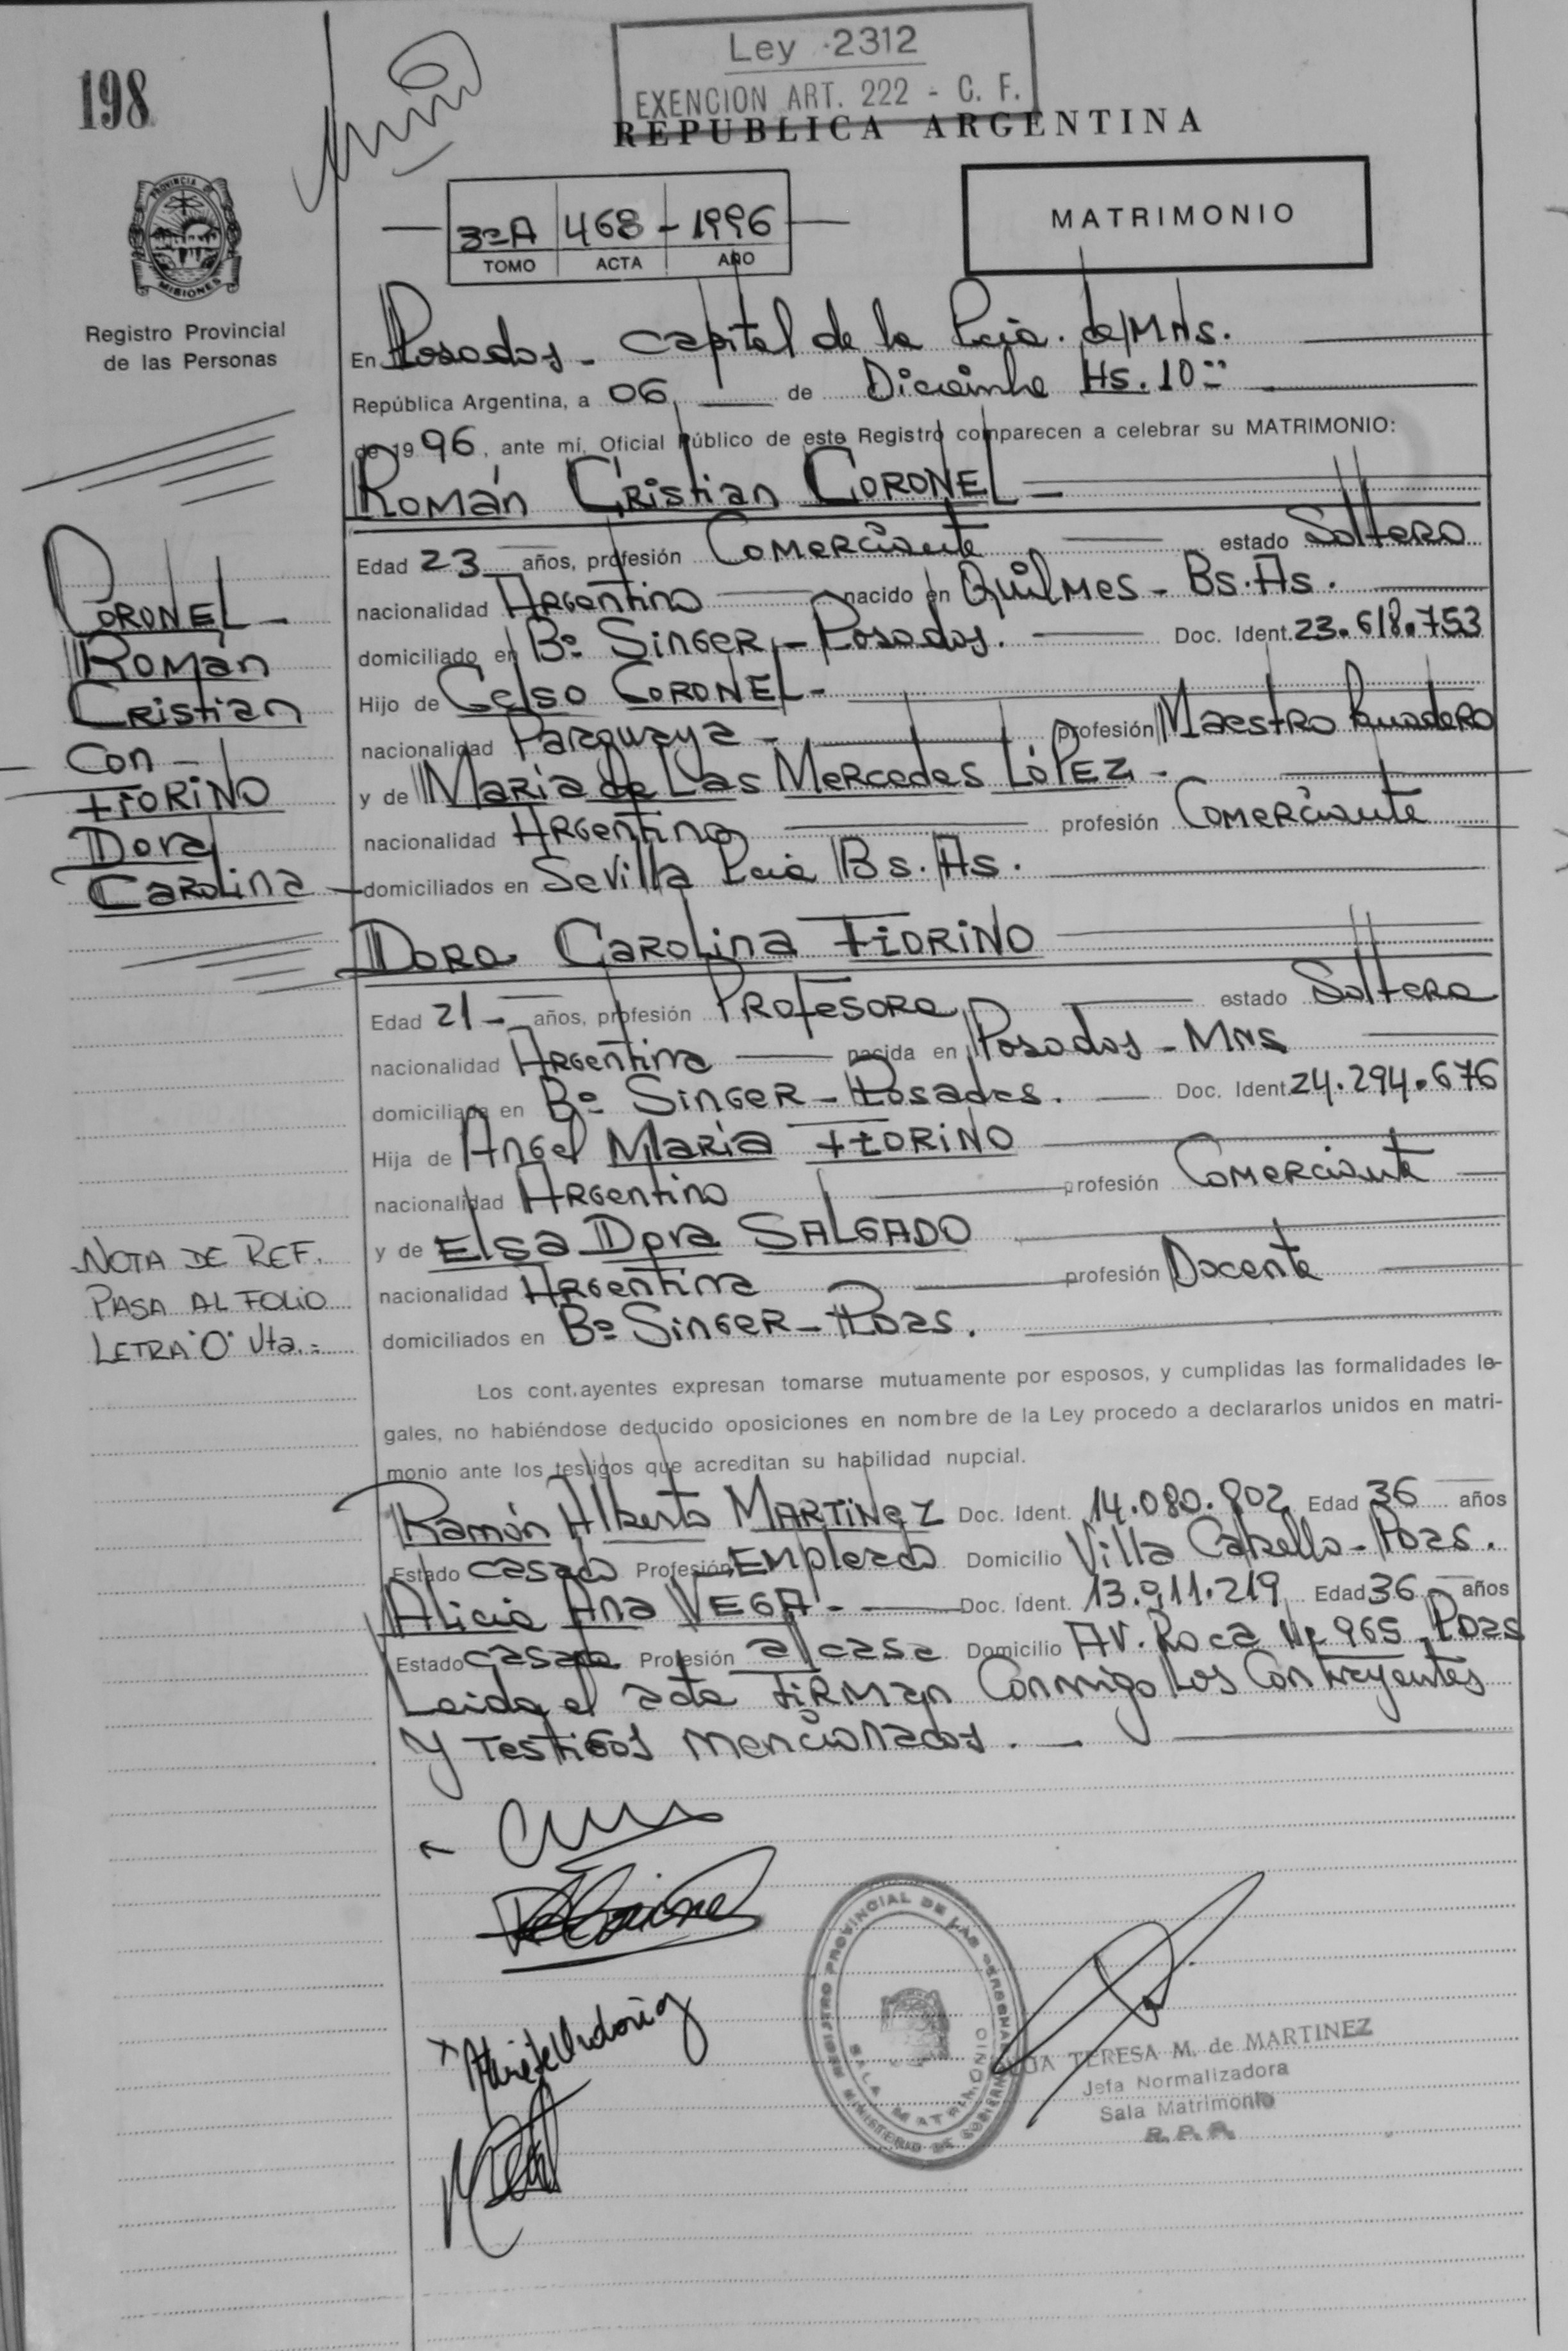 198
Ley 2312
EXENCION ART. 222 - C. F.
REPUBLICA ARGENTINA
PROVINCIA DE MISIONES
Registro Provincial
de las Personas
3º A 468 - 1996
TOMO ACTA AÑO
MATRIMONIO
En Posadas - Capital de la Pcia. de Mns.
República Argentina, a 06 de Diciembre Hs. 10
de 19 96, ante mí, Oficial Público de este Registro comparecen a celebrar su MATRIMONIO:
Román Cristian CORONEL -
Edad 23 años, profesión Comerciante estado Soltero
nacionalidad Argentino nacido en Quilmes - Bs. As.
domiciliado en Bº Singer - Posadas. Doc. Ident. 23.618.753
Hijo de Celso CORONEL -
nacionalidad Paraguaya - profesión Maestro
y de María de Las Mercedes LÓPEZ -
nacionalidad Argentina profesión Comerciante
domiciliados en Sevilla Pcia Bs. As.
CORONEL -
Román
Cristian
Con -
FIORINO
Dora
Carolina
Dora Carolina FIORINO
Edad 21 - años, profesión Profesora estado Soltera
nacionalidad Argentina nacida en Posadas - Mns
domiciliada en Bº Singer - Posadas. Doc. Ident. 24.294.676
Hija de Angel María FIORINO
nacionalidad Argentino profesión Comerciante
y de Elsa Dora SALGADO
nacionalidad Argentina profesión Docente
domiciliados en Bº Singer - Pdas.
NOTA DE REF.
PASA AL FOLIO
LETRA "O" Vta.=
Los cont.ayentes expresan tomarse mutuamente por esposos, y cumplidas las formalidades le-
gales, no habiéndose deducido oposiciones en nombre de la Ley procedo a declararlos unidos en matri-
monio ante los testigos que acreditan su habilidad nupcial.
Ramón Alberto MARTINEZ Doc. Ident. 14.080.802 Edad 36 años
Estado casado Profesión Empleado Domicilio Villa Cabello - Pdas.
Alicia Ana VEGA - Doc. Ident. 13.911.219 Edad 36 años
Estado casada Profesión a/casa Domicilio AV. Roca Nº 965 Pdas
Leida el acta Firman Conmigo Los Contrayentes
y Testigos mencionados. -
REGISTRO PROVINCIAL DE LAS PERSONAS
SALA MATRIMONIO
MINISTERIO DE GOBIERNO
TERESA M. de MARTINEZ
Jefa Normalizadora
Sala Matrimonio
R. P. P.